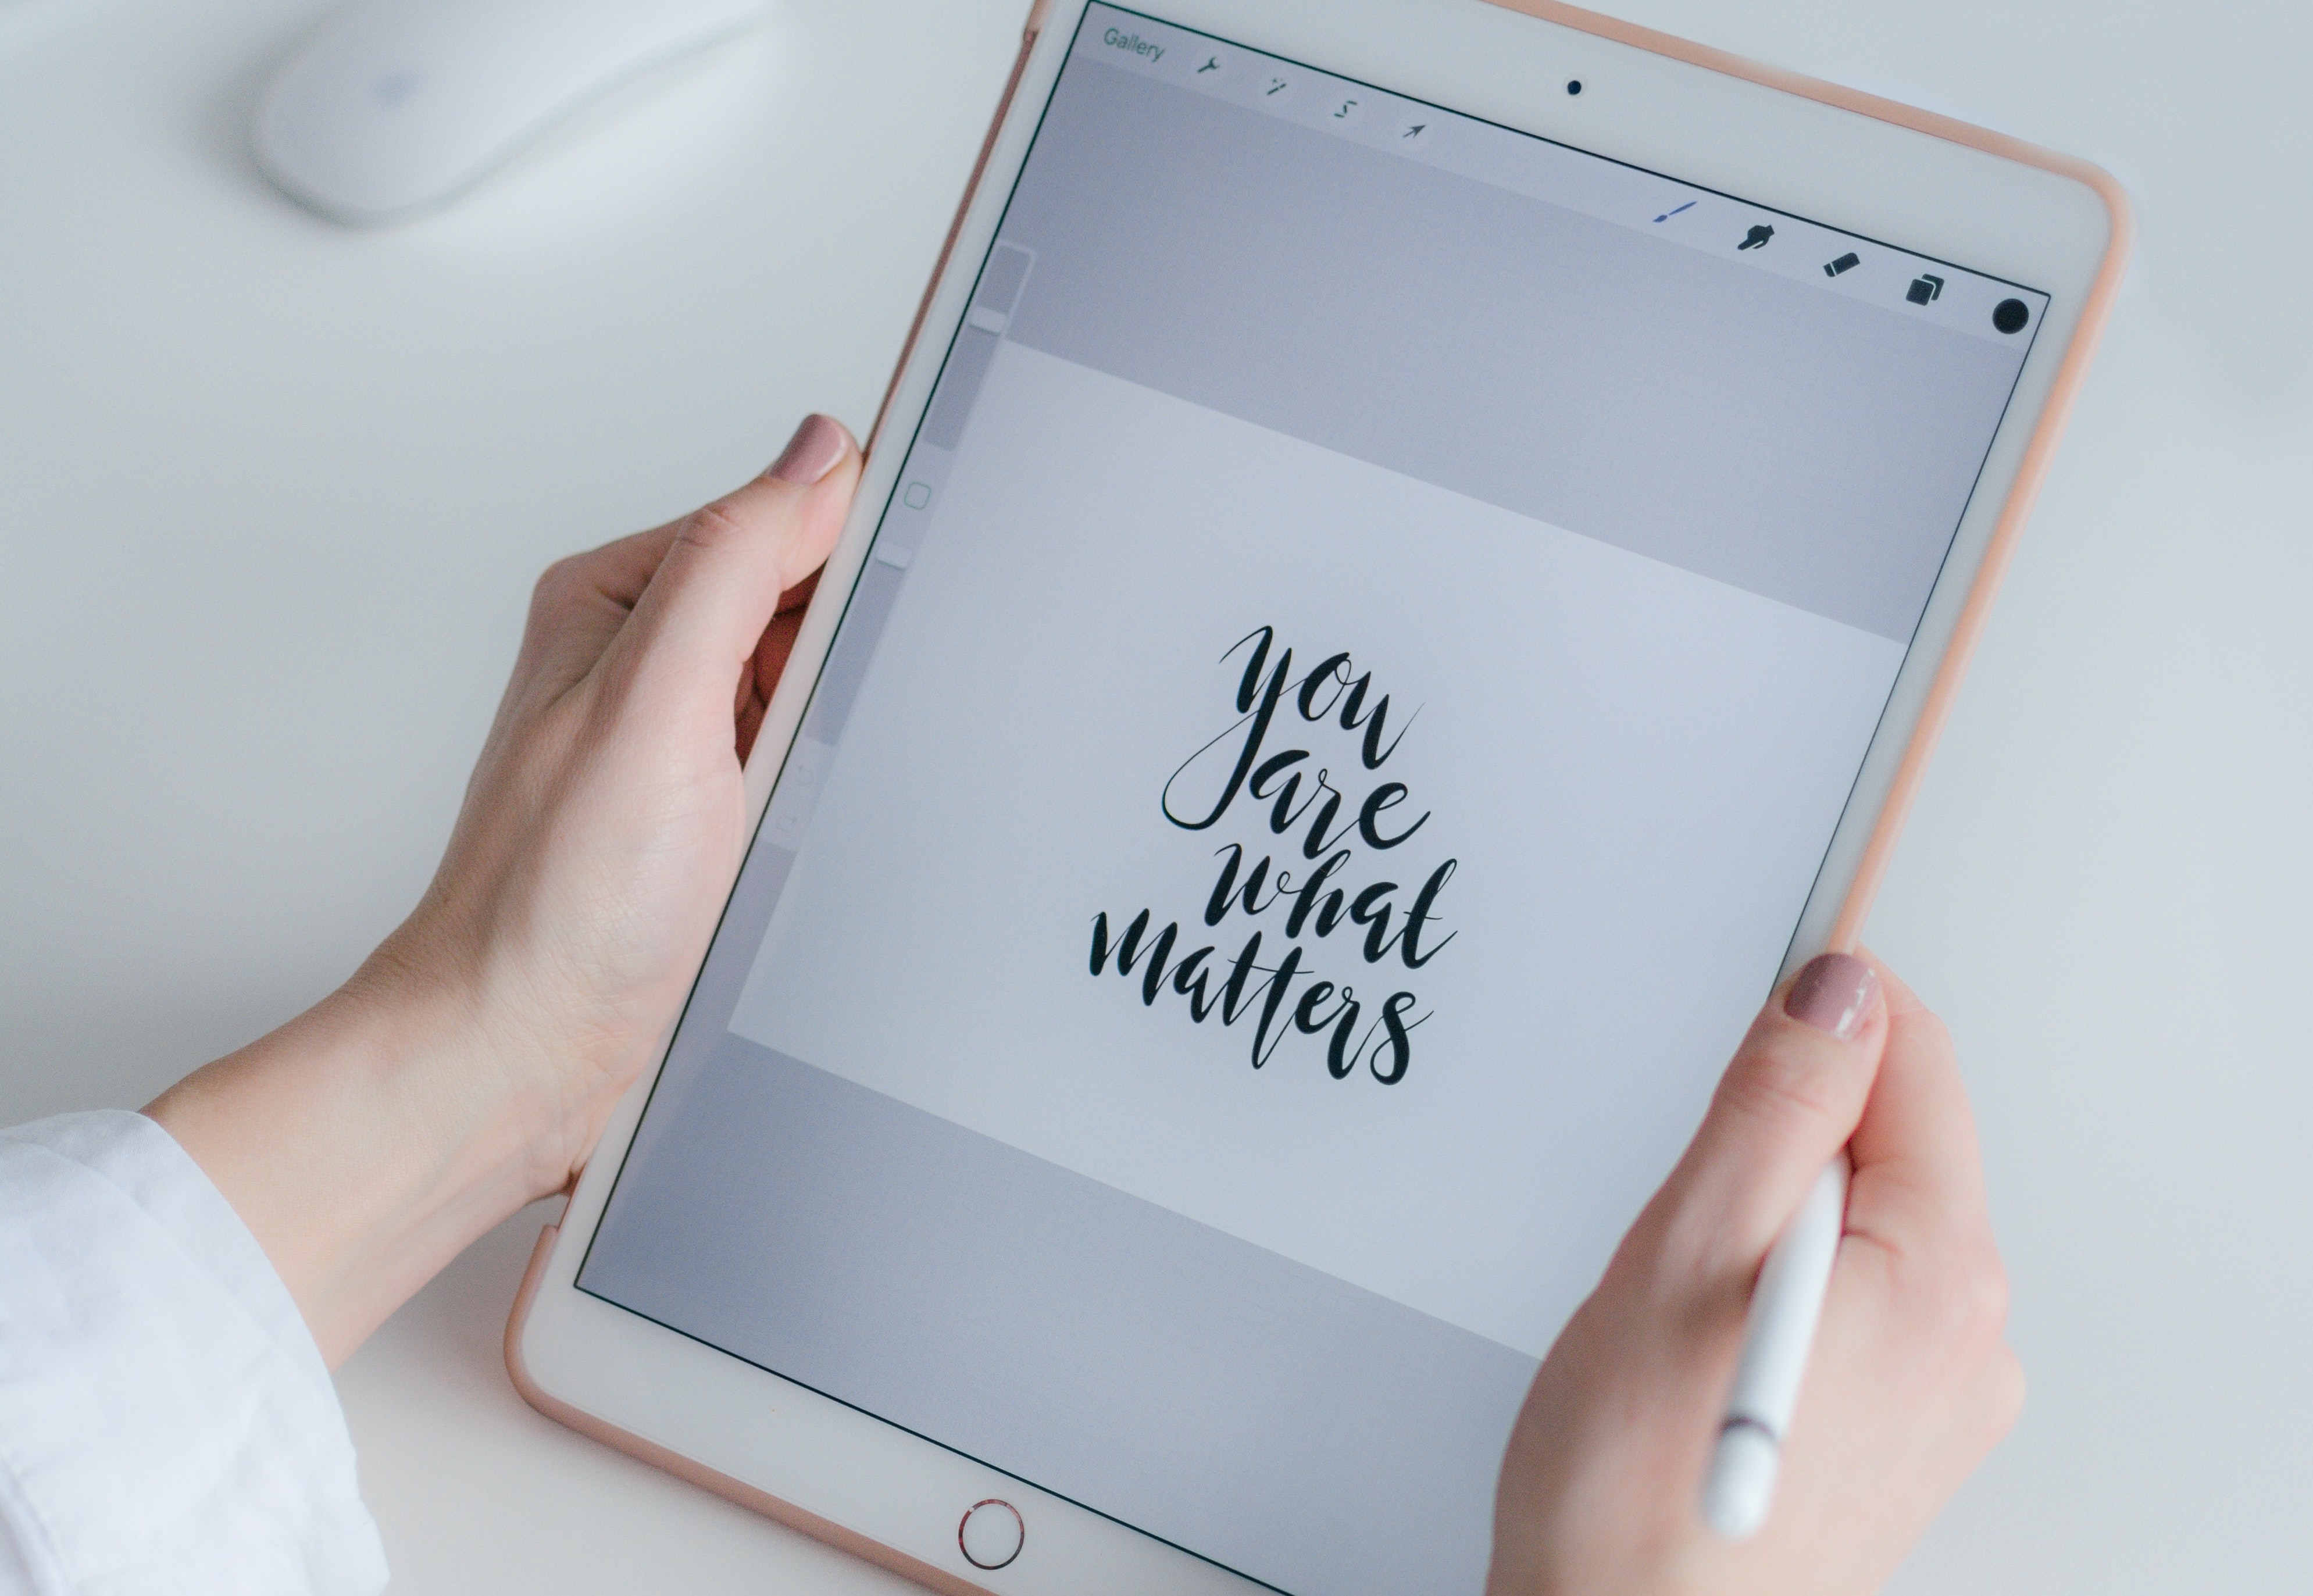 Gallery
you
are
what
matters